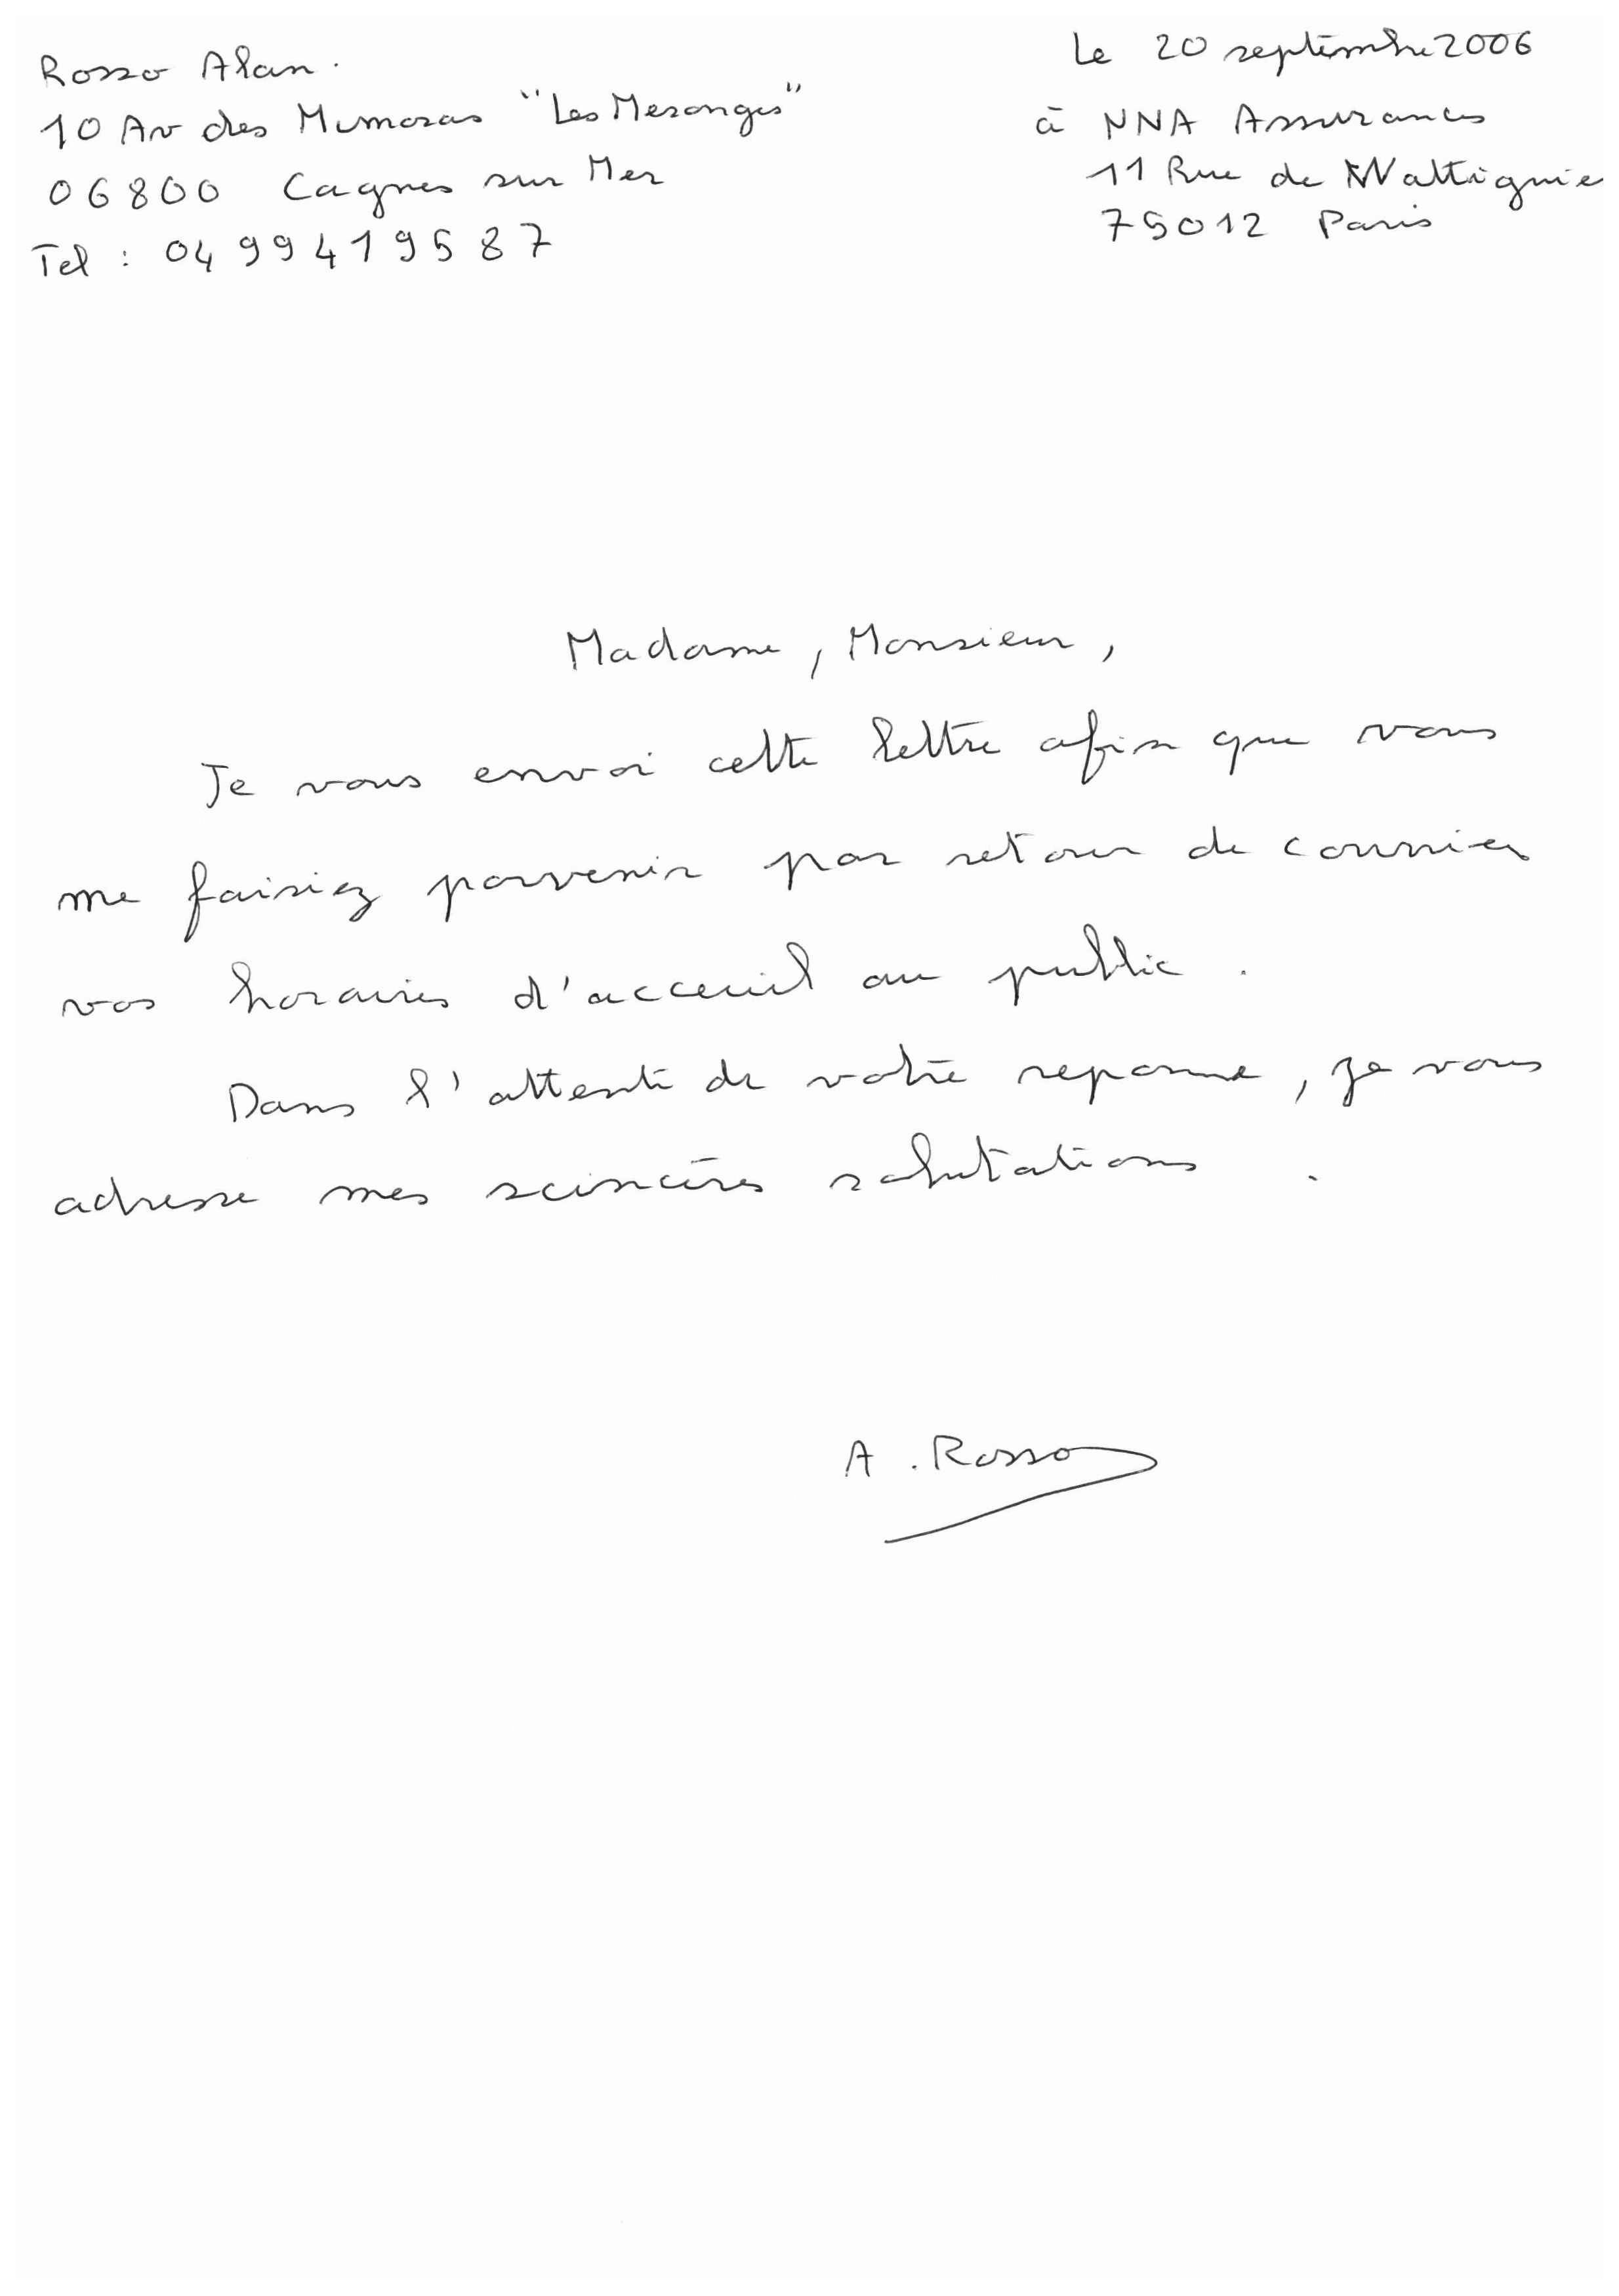 Rosso Alan.
10 Av des Mimosas "Les Mesanges"
06800 Cagnes sur Mer
Tel : 04 99 41 95 87
Le 20 septembre 2006
à NNA Assurances
11 Rue de Wattignie
75012 Paris
Madame, Monsieur,
Je vous envoi cette lettre afin que vous
me faisiez parvenir par retour de courrier
vos horaires d'acceuil au public.
Dans l'attente de votre reponse, je vous
adresse mes scincères salutations.
A. Rosso